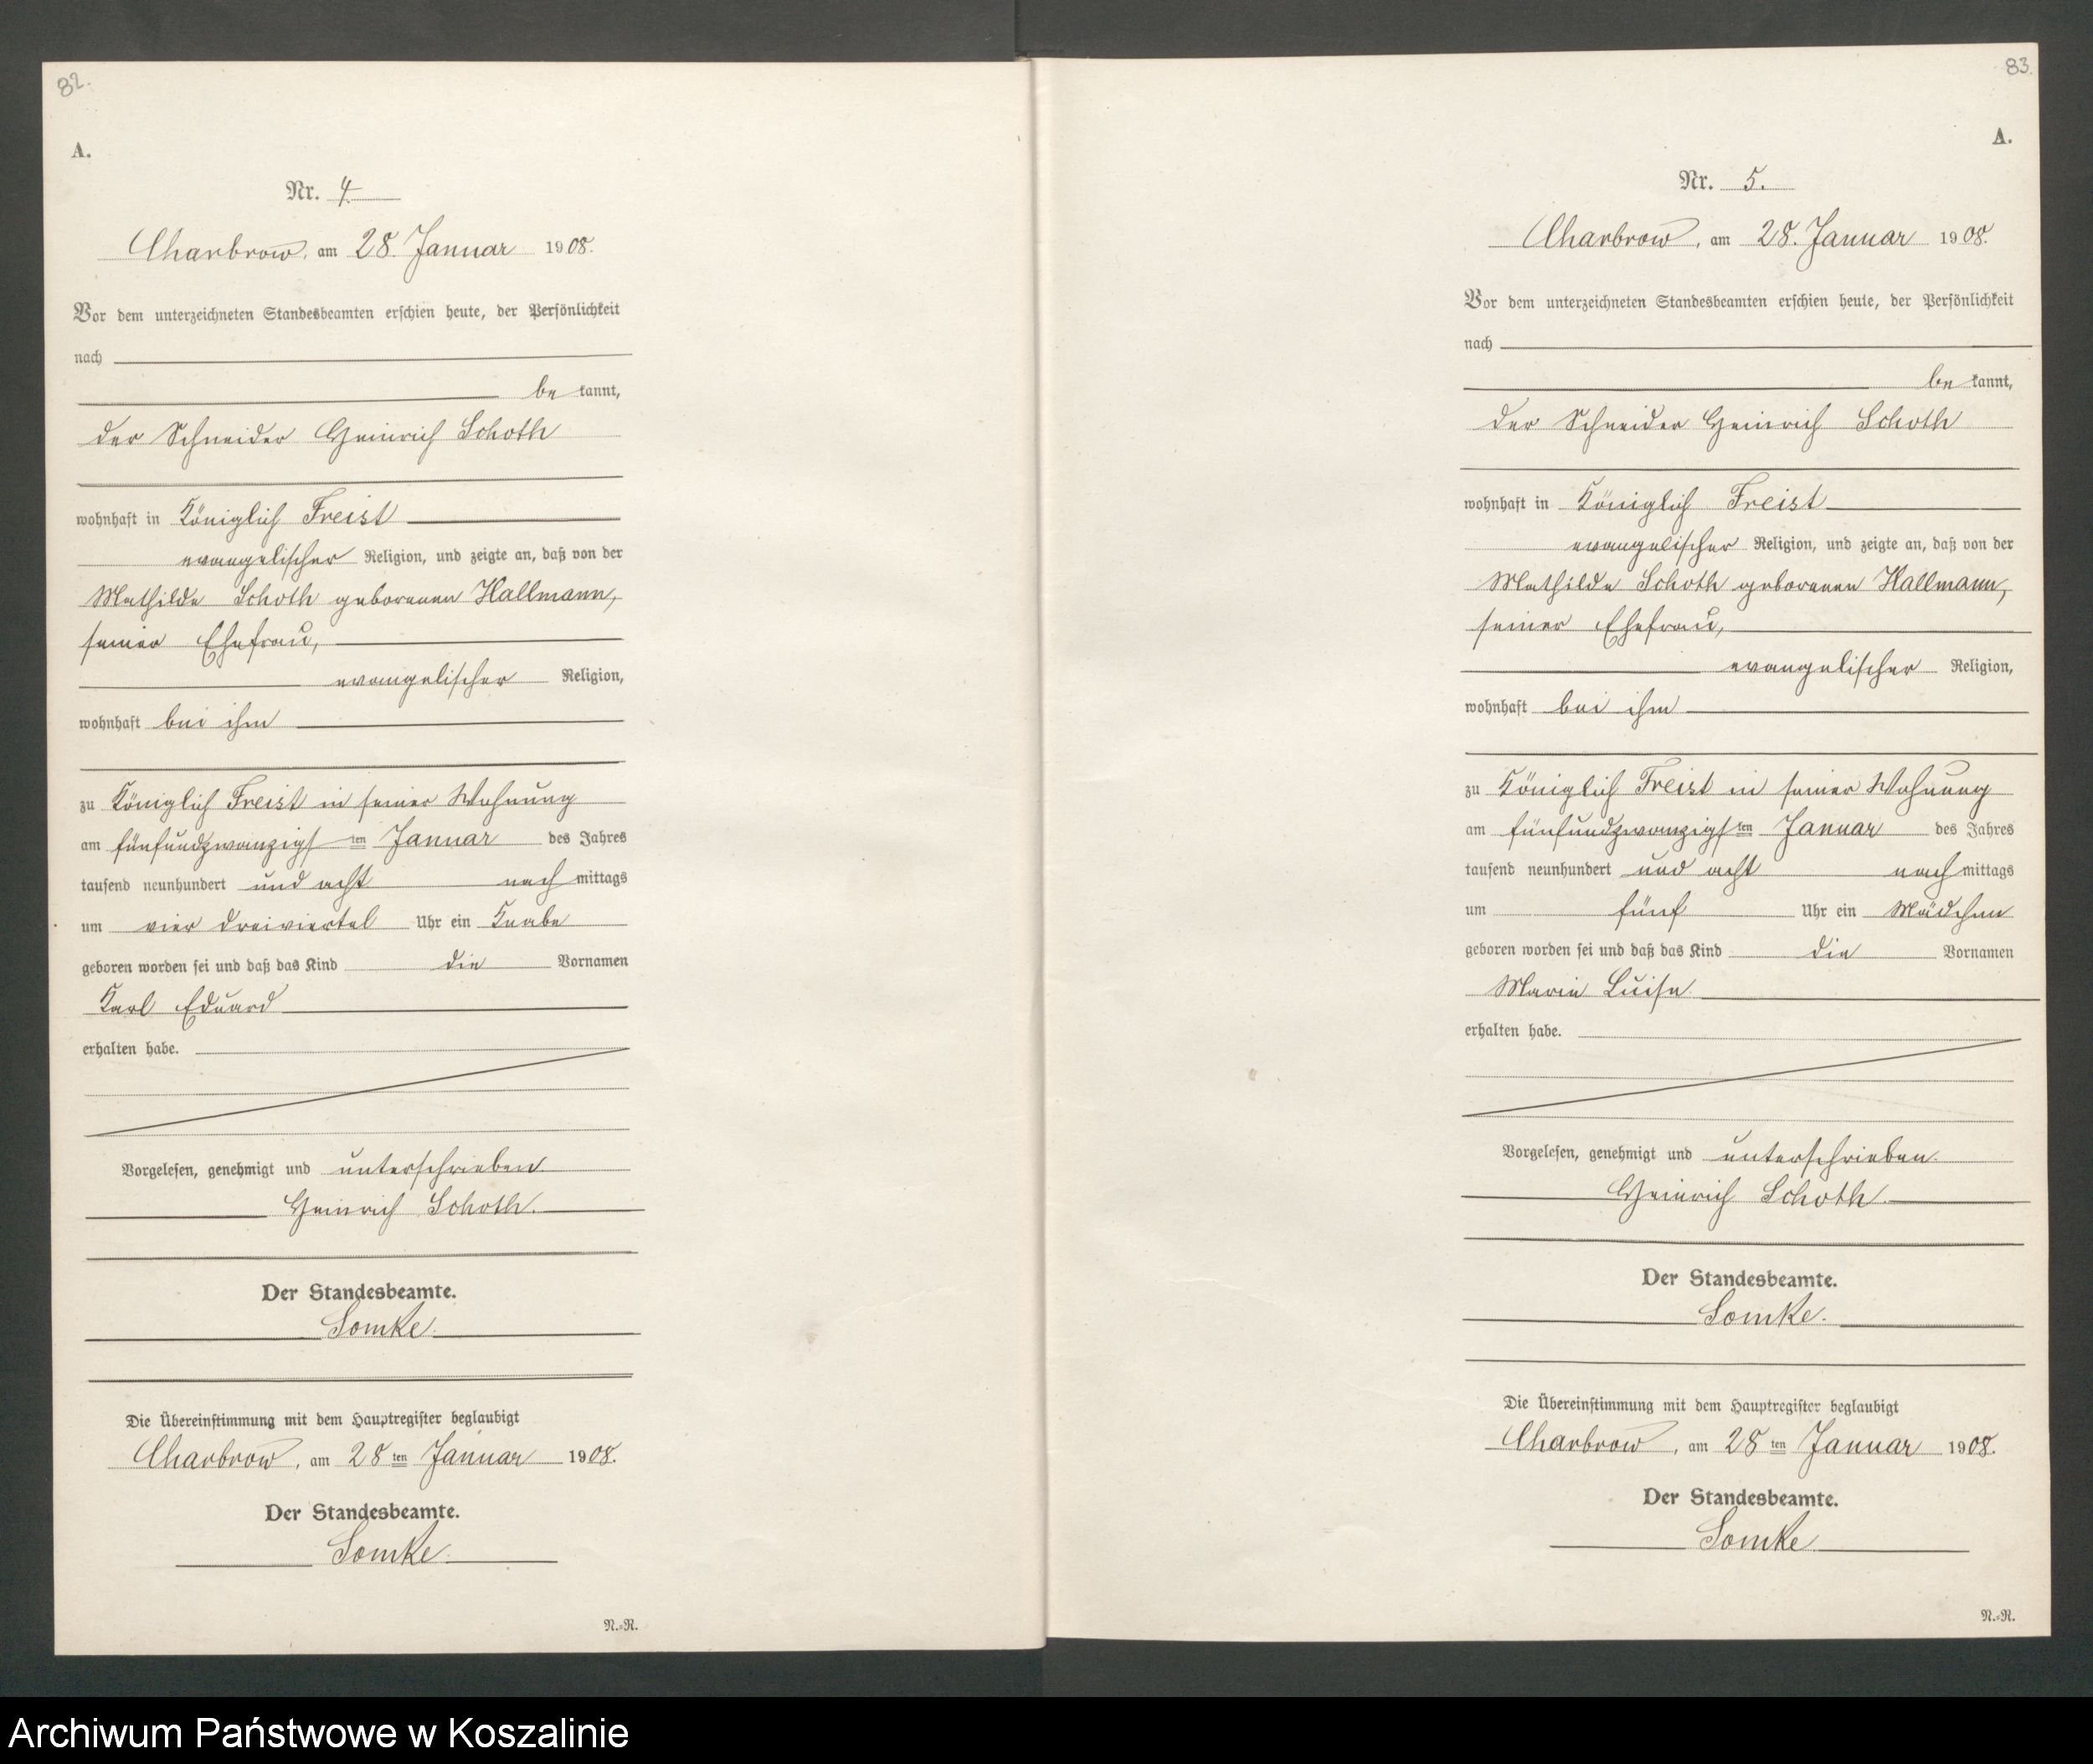 82.
A.
Nr. 4.
Charbrow, am 28. Januar 1908.
Vor dem unterzeichneten Standesbeamten erschien heute, der Persönlichkeit
nach
be kannt,
der Schneider Heinrich Schoth
wohnhaft in Königlich Freist
evangelischer Religion, und zeigte an, daß von der
Mathilde Schoth geborenen Hallmann,
seiner Ehefrau,
evangelischer Religion,
wohnhaft bei ihm
zu Königlich Freist in seiner Wohnung
am fünfundzwanzigsten Januar des Jahres
tausend neunhundert und acht nachmittags
um vier dreiviertel Uhr ein Knabe
geboren worden sei und daß das Kind die Vornamen
Karl Eduard
erhalten habe.
Vorgelesen, genehmigt und unterschrieben
Heinrich Schoth.
Der Standesbeamte.
Somke.
Die Übereinstimmung mit dem Hauptregister beglaubigt
Charbrow, am 28ten Januar 1908.
Der Standesbeamte.
Somke.
N.=R.
83.
A.
Nr. 5.
Charbrow, am 28. Januar 1908.
Vor dem unterzeichneten Standesbeamten erschien heute, der Persönlichkeit
nach
be kannt,
der Schneider Heinrich Schoth
wohnhaft in Königlich Freist
evangelischer Religion, und zeigte an, daß von der
Mathilde Schoth geborenen Hallmann,
seiner Ehefrau,
evangelischer Religion,
wohnhaft bei ihm
zu Königlich Freist in seiner Wohnung
am fünfundzwanzigsten Januar des Jahres
tausend neunhundert und acht nachmittags
um fünf Uhr ein Mädchen
geboren worden sei und daß das Kind die Vornamen
Marie Luise
erhalten habe.
Vorgelesen, genehmigt und unterschrieben.
Heinrich Schoth.
Der Standesbeamte.
Somke.
Die Übereinstimmung mit dem Hauptregister beglaubigt
Charbrow, am 28ten Januar 1908.
Der Standesbeamte.
Somke
N.=R.
Archiwum Państwowe w Koszalinie